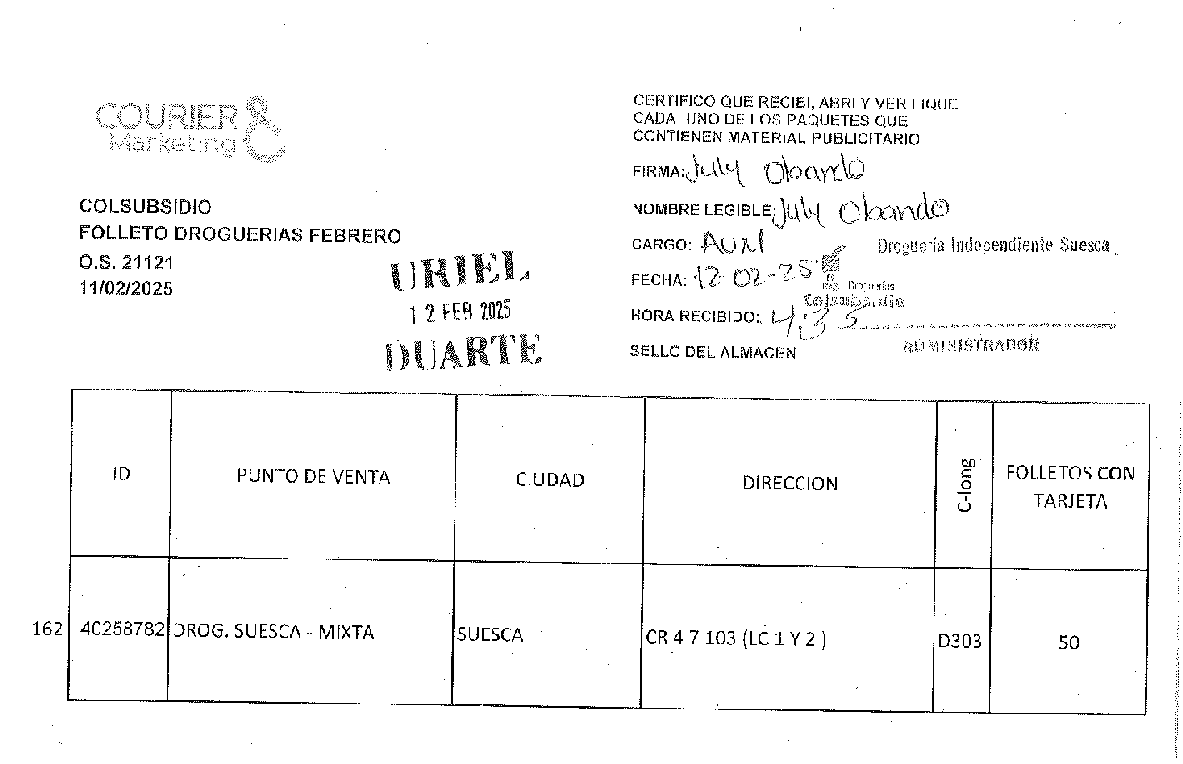 COURIER
Marketing
COLSUBSIDIO
FOLLETO DROGUERIAS FEBRERO
O.S. 21121
11/02/2025
URIEL
12 FEB 2025
DUARTE
CERTIFICO QUE RECIBI, ABRI Y VERIFIQUE
CADA UNO DE LOS PAQUETES QUE
CONTIENEN MATERIAL PUBLICITARIO
FIRMA: July Obando
NOMBRE LEGIBLE: July Obando
CARGO: Auxl
FECHA: 12-02-25
HORA RECIBIDO: 4:35
SELLO DEL ALMACEN
Droguería Independiente Suesca
Droguerías
Colsubsidio
ADMINISTRADOR
ID PUNTO DE VENTA CIUDAD DIRECCION C-long FOLLETOS CON TARJETA
162 40258782 DROG. SUESCA - MIXTA SUESCA CR 4 7 103 (LC 1 Y 2 ) D303 50